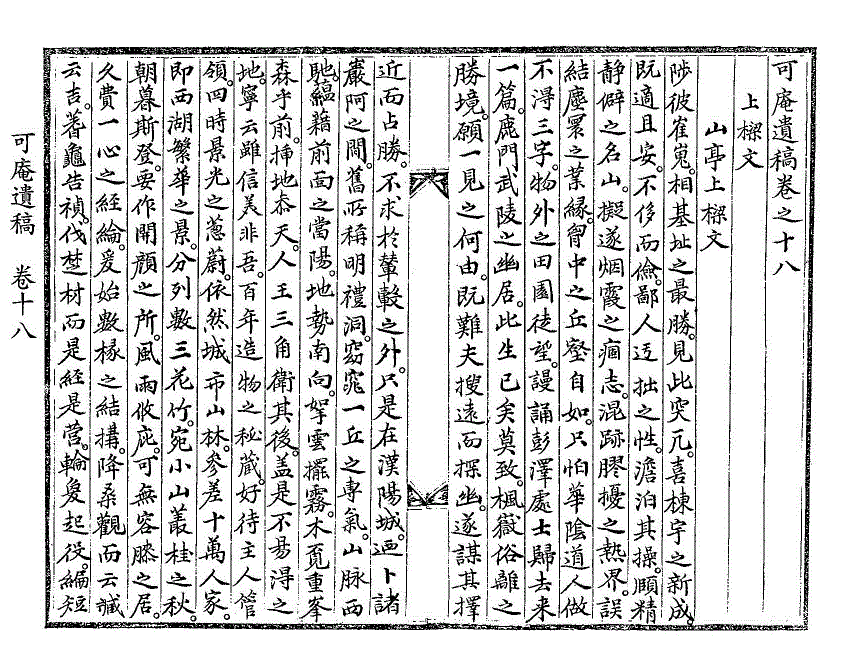 可庵遺稿卷之十八
上樑文
山亭上樑文
陟彼崔嵬。相基址之最勝。見此突兀。喜棟宇之新成。
既適且安。不侈而儉。鄙人迂拙之性。澹泊其操。頤精
靜僻之名山。擬遂烟霞之痼志。混跡膠擾之熱界。誤
結塵累之業緣。胷中之丘壑自如。只怕華陰道人做
不淂三字。物外之田園徒望。謾誦彭澤處士歸去来
一篇。鹿門武陵之幽居。此生已矣莫致。楓嶽俗離之
勝境。願一見之何由。既難夫搜遠而探幽。遂謀其擇
近而占勝。不求於輦轂之外。只是在漢陽城。迺卜諸
巖阿之間。舊所稱明禮洞。窈窕一丘之專氣。山脉西
馳。緼藉前面之當陽。地勢南向。挐雲擺霧。木覓重峯
森乎前。揷地叅天。人王三角衛其後。盖是不易得之
地。寧云雖信美非吾。百年造物之秘藏。好待主人管
領。四時景光之葱蔚。依然城市山林。參差十萬人家。
即西湖繁華之景。分列數三花竹。宛小山叢桂之秋。
朝暮斯登。要作開顔之所。風雨攸庇。可無容膝之居。
久費一心之經綸。爰始數椽之結搆。降桑觀而云臧
云吉。蓍龜告禎。伐楚材而是經是營。輪奐起役。編短
可庵遺稿　卷十八